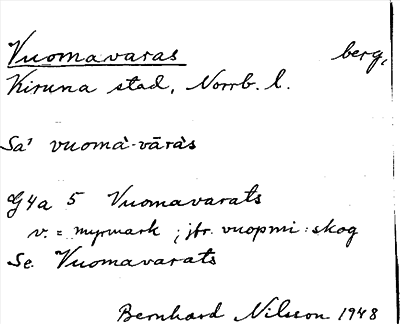 Vuomavaras berg,
Kiruna stad, Norrb. l.
Sa' vuomà-vāràs
G4a 5 Vuomavarats
v. = myrmark ; jfr. vuopmi : skog
Se. Vuomavarats
Bernhard Nilsson 1948